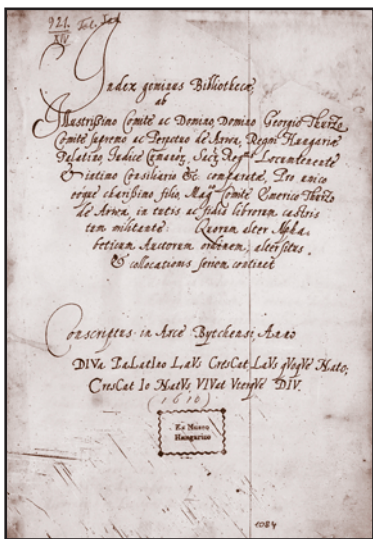 921. Fol. Lat.
XIV
Index geminus Bibliothecæ,
ab
Illustrißimo Comite ac Domino Domino Georgio Thurzo
Comite supremo ac Perpetuo de Arva, Regni Hungariæ
Palatino Judice Locumtenente
& intimo Consiliario &c. comparatæ, Pro unico
eoque charißimo filio, Comite Emerico Thurzo
de Arva, in tutis ac fidis librorum castris
tum militante: Quorum alter Alpha-
beticum Auctorum ordinem, alter situs
& collocationis seriem continet
Conscriptus in Arce Bytchensi, Anno
DIVa PaLatIno LaVs CresCat, LaVs qVoqVe Nato;
CresCat Io NatVs, VIVat VterqVe DIV.
(1610)
Ex Museo
Hungarico
1084